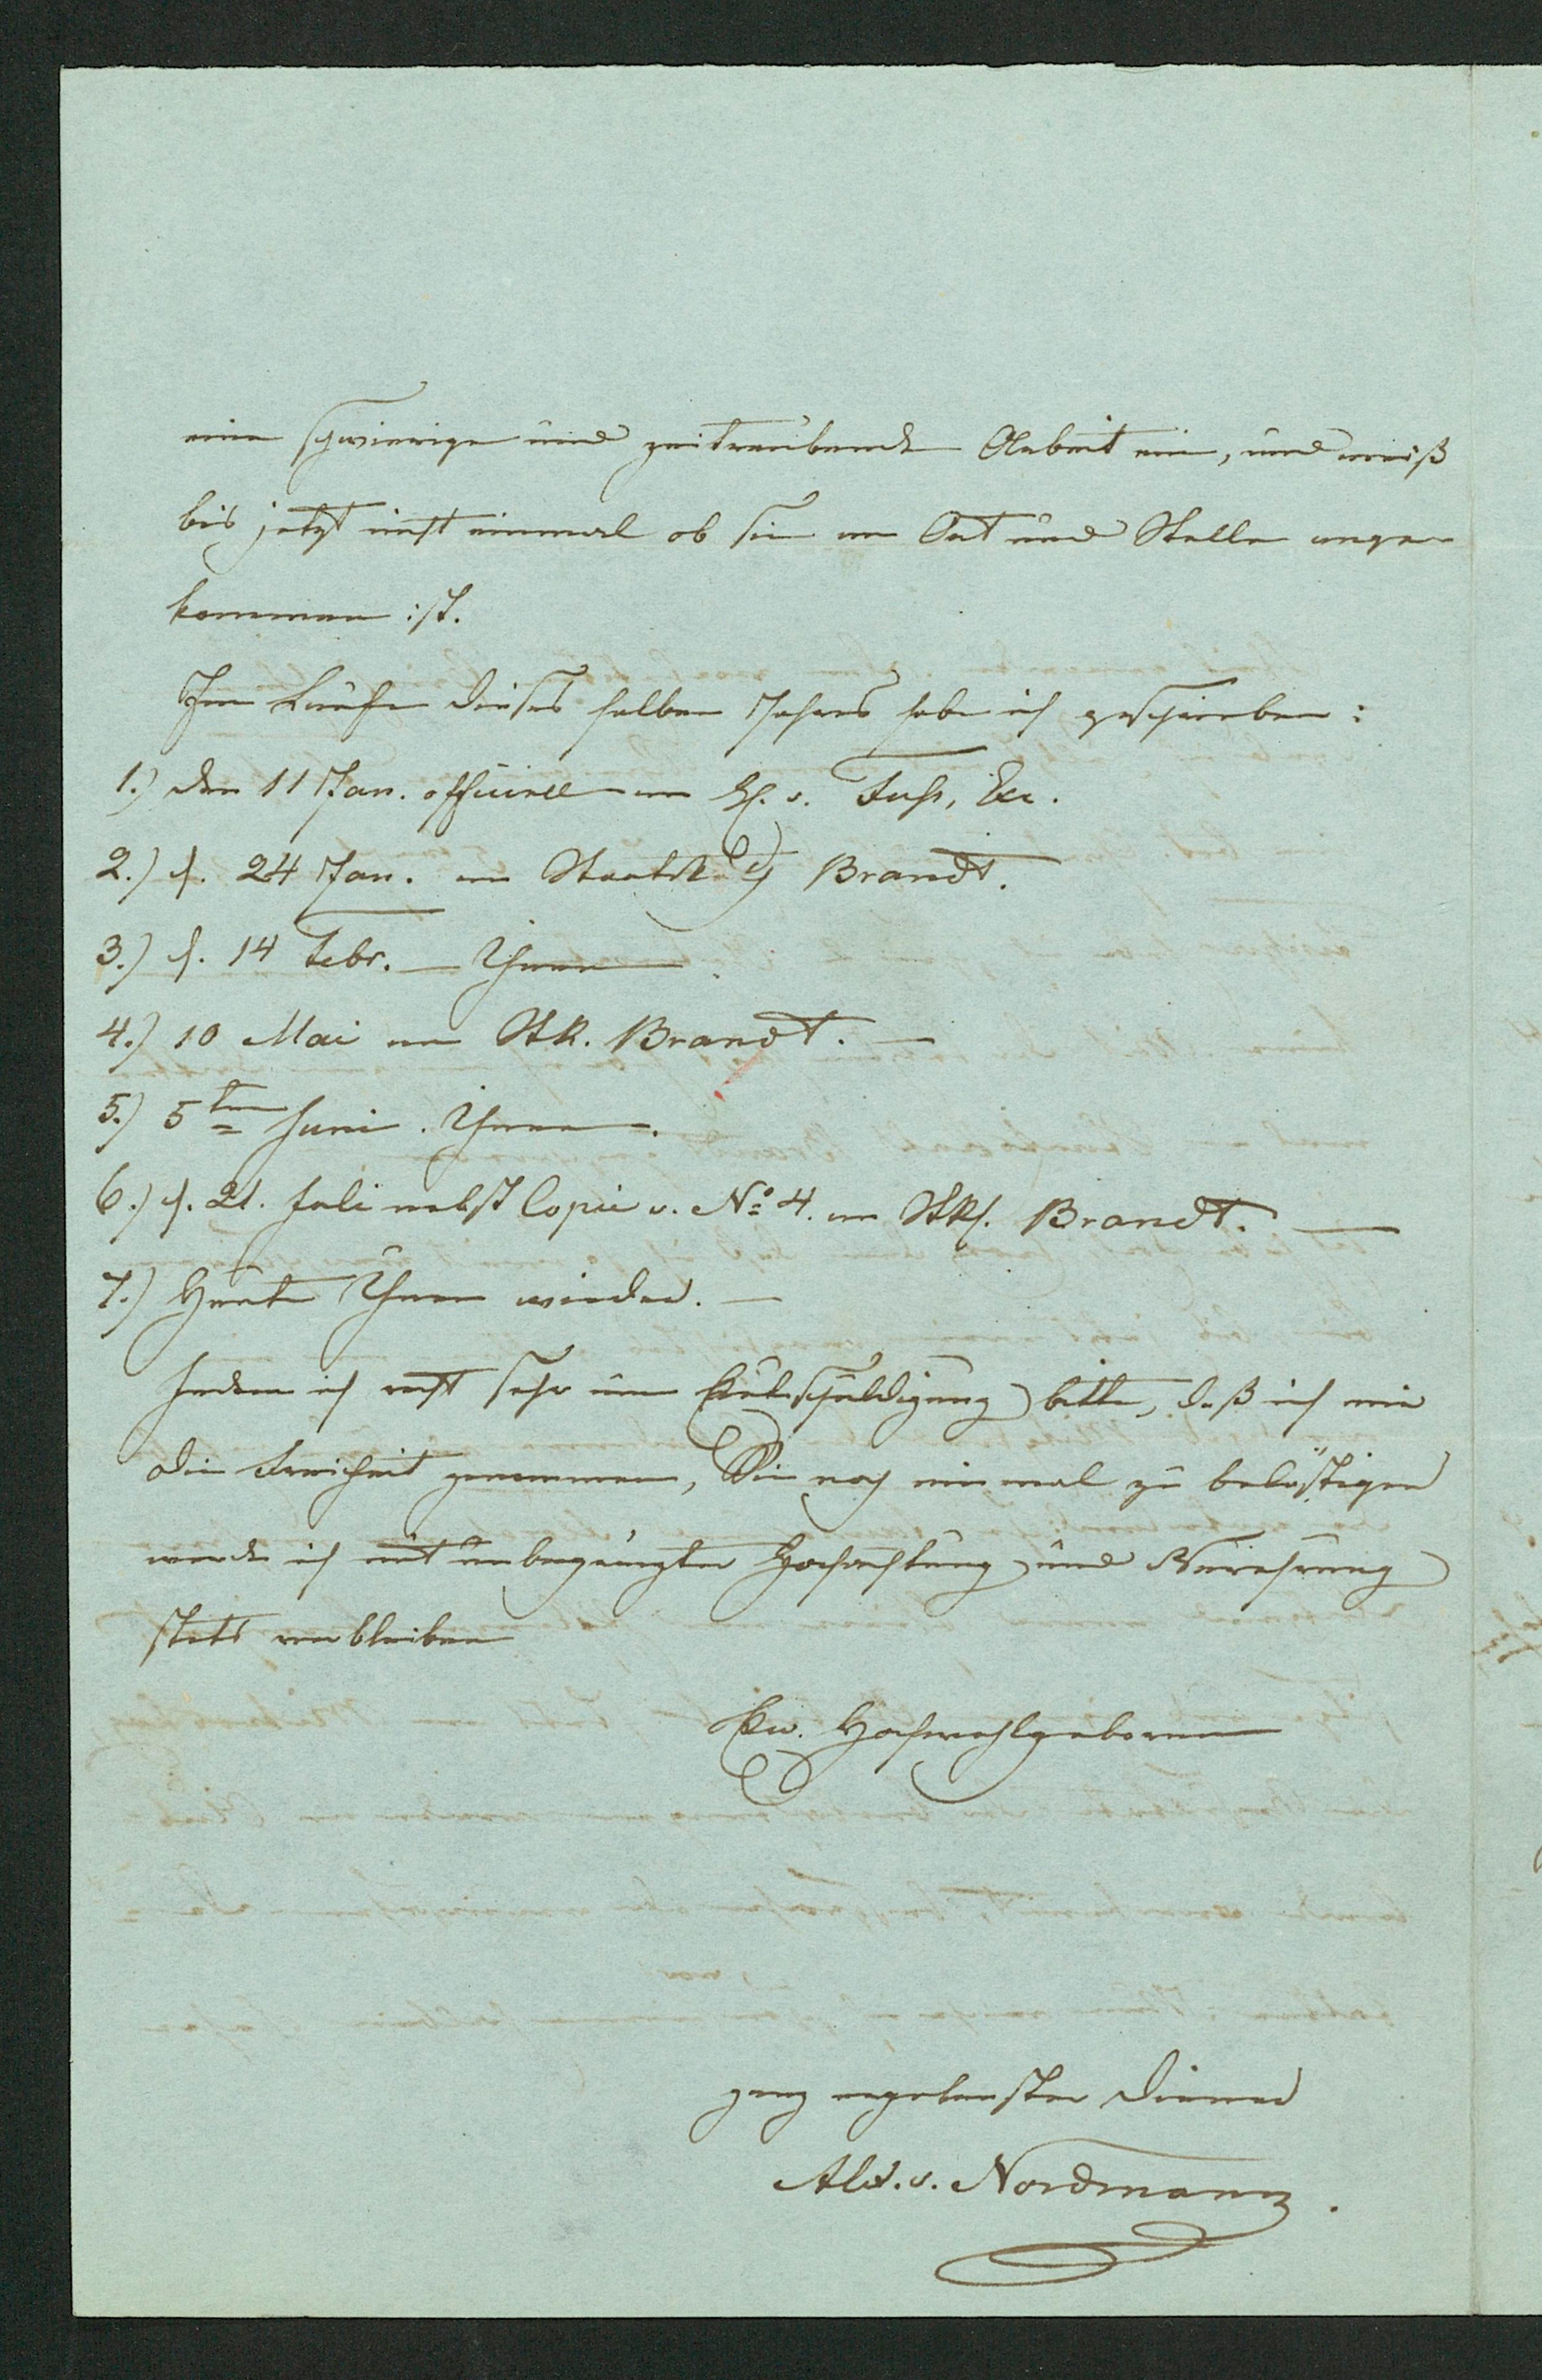 eine schwierige und zeitraubende Arbeit ein, und weiß
bis jetzt nicht einmal ob sie an Ort und Stelle ange-
kommen ist.
Im Laufe dieses halben Jahres habe ich geschrieben:
1.) den 11 Jan. officiell an H. v. Fuss, Exc.
2.) d. 24 Jan. an Staatsr. Brandt.
3.) d. 14 Febr. — Ihnen.
4.) 10 Mai an StR. Brandt. —
5.) 5ten Juni. Ihnen.
6.) d. 21. Juli nebst Copie v. No 4. an StR. Brandt. —
7.) Heute Ihnen wieder. —
Indem ich recht sehr um Entschuldigung bitte, daß ich mir
die Freiheit genommen, Sie noch einmal zu belästigen
werde ich mit unbegränzter Hochachtung und Verehrung
stets verbleiben
Ew. Hochwohlgeboren
ganz ergebenster Diener
Alex. v. Nordmann.